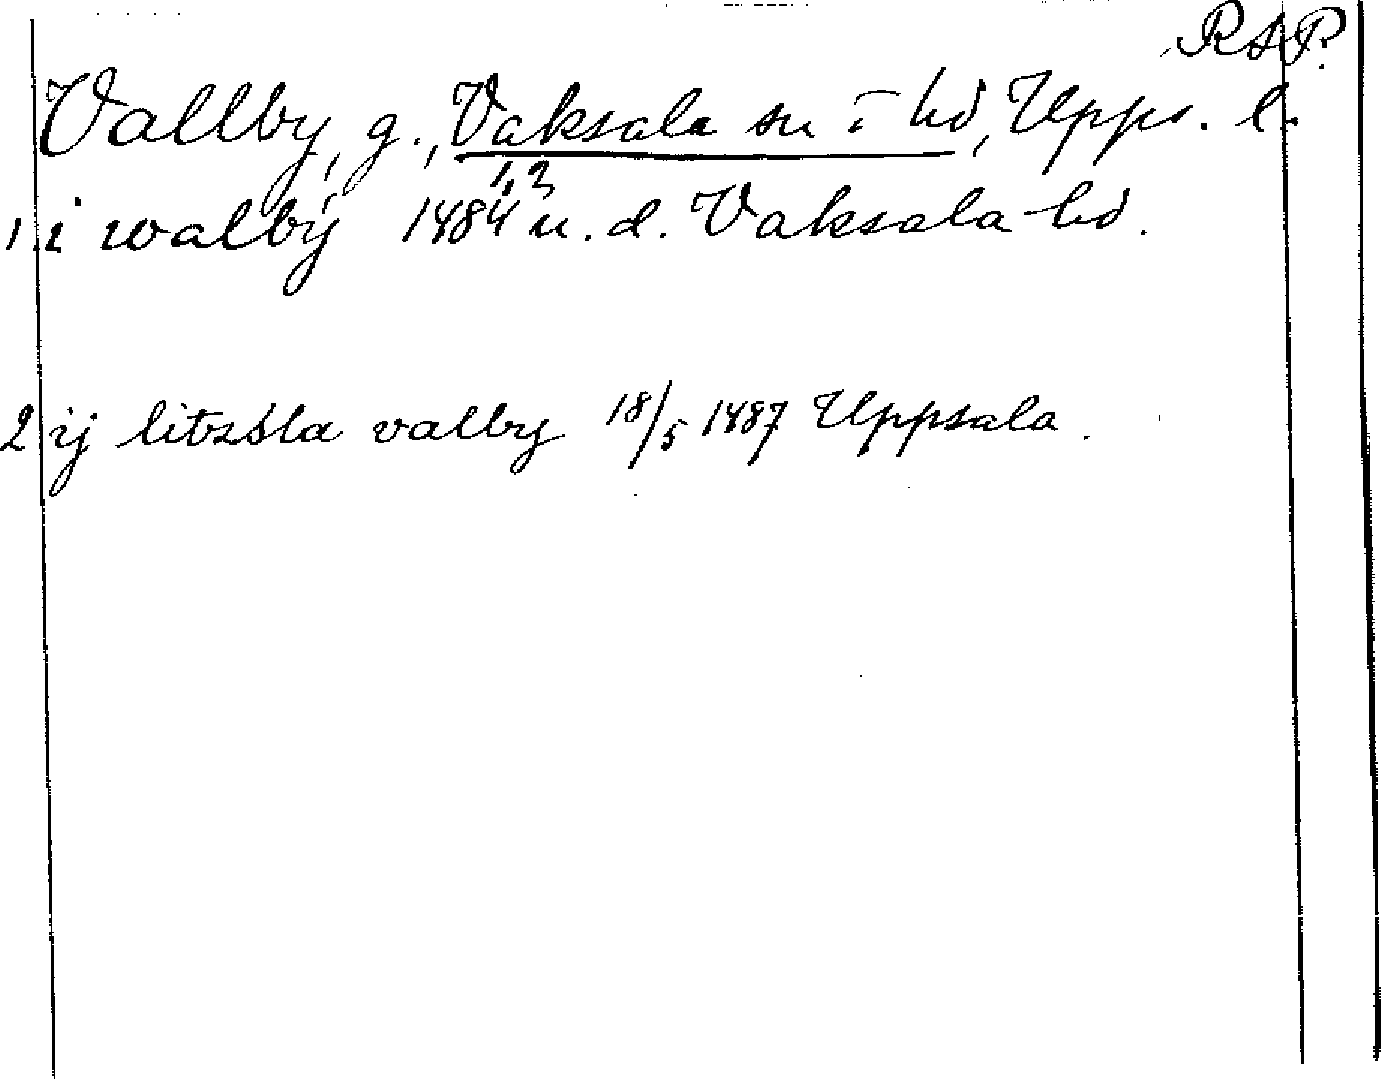 RAP.
Vallby, g., Vaksala sn i hd, Upps. l.
1,2
1. i walbÿ 1484 u. d. Vaksala hd.
2 ij litzsla valby 18/5 1487 Uppsala.